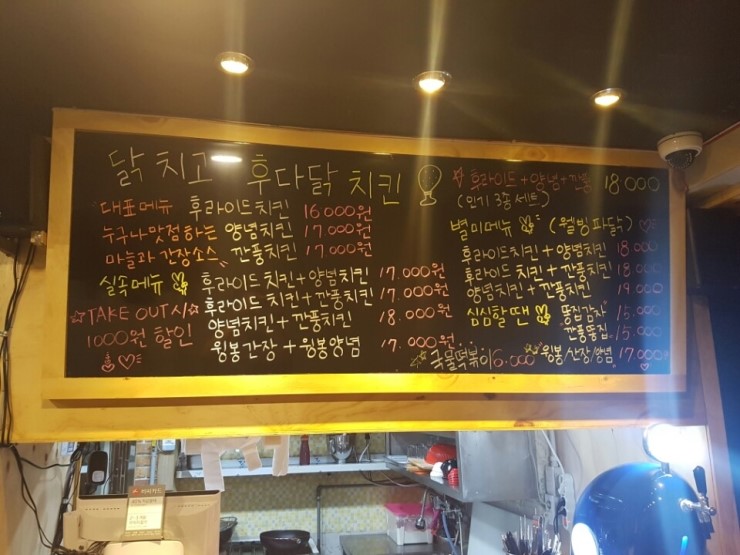 닭치고 후다닭 치킨
대표메뉴 후라이드치킨 16000원
누구나맛점하는 양념치킨 17000원
마늘과 간장소스 깐풍치킨 17000원
실속메뉴 후라이드치킨+양념치킨 17.000원
후라이드 치킨+깐풍치킨 17.000원
양념치킨+깐풍치킨 18.000원
윙봉간장+윙봉양념 17.000원
☆TAKE OUT시☆
1000원 할인
☆후라이드+양념+깐풍 18.000
(인기 3종세트)
별미메뉴 (웰빙파닭)
후라이드치킨+양념치킨 18.000
후라이드치킨+깐풍치킨 18.000
양념치킨+깐풍치킨 19.000
심심할땐 똥집감자 15.000
깐풍똥집 15.000
☆☆국물떡볶이 6.000
☆윙봉/간장/양념 17.000